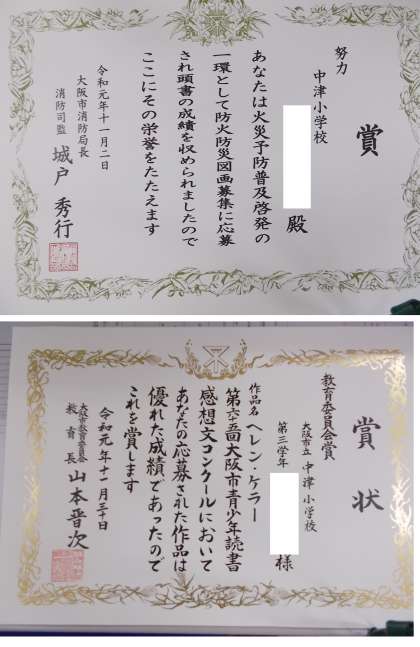 賞
努力
中津小学校
殿
あなたは火災予防普及啓発の
一環として防火防災図画募集に応募
され頭書の成績を収められましたので
ここにその栄誉をたたえます
令和元年十一月二日
大阪市消防局長
消防司監 城戸秀行
賞状
教育委員会賞
大阪市立中津小学校
第三学年 様
作品名 ヘレン・ケラー
第六五回大阪市青少年読書
感想文コンクールにおいて
あなたの応募された作品は
優れた成績であったので
これを賞します
令和元年十一月三十日
大阪市教育委員会
教育長 山本晋次